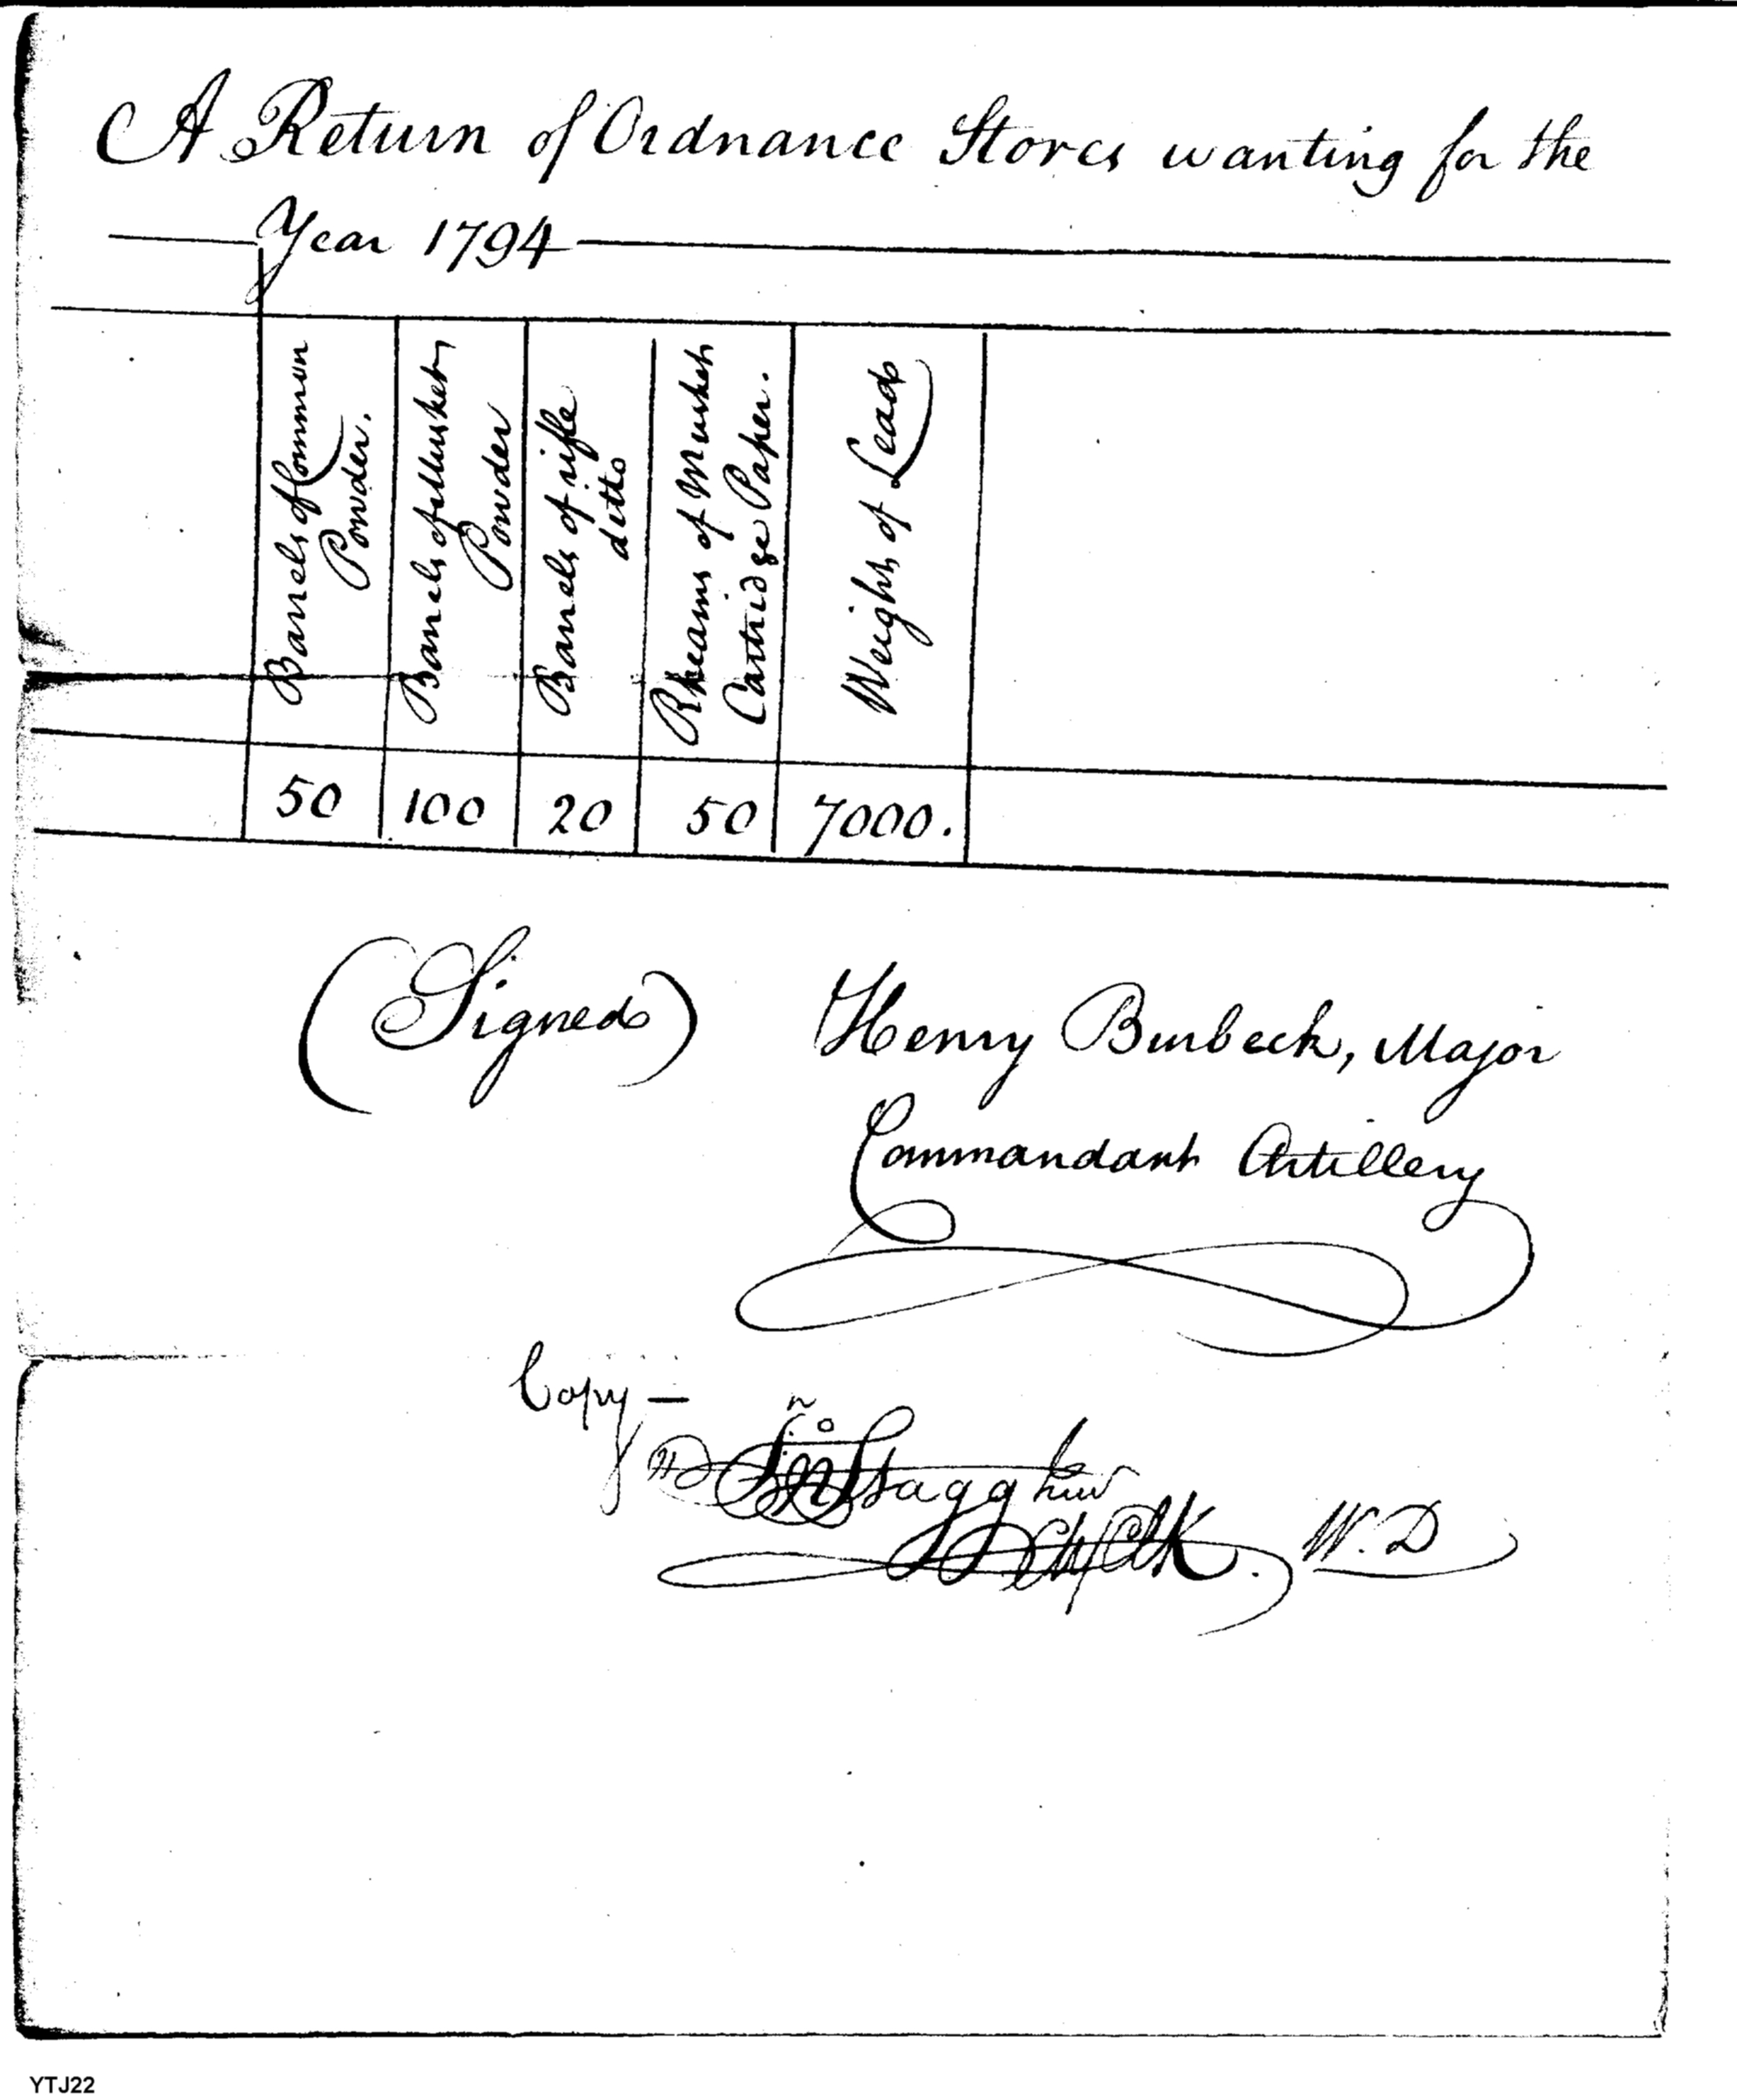 A Return of Ordnance Stores wanting for the
Year 1794
Barrels of Common
Powder.
Barrels of Musket
Powder
Barrels of rifle
ditto
Rheams of Musket
Cartridge Paper.
Weight of Lead
50 100 20 50 7000.
(Signed) Henry Burbeck, Major
Commandant Artillery
Copy —
Jno Stagg Junr
Ch. Clk. W. D
YTJ22